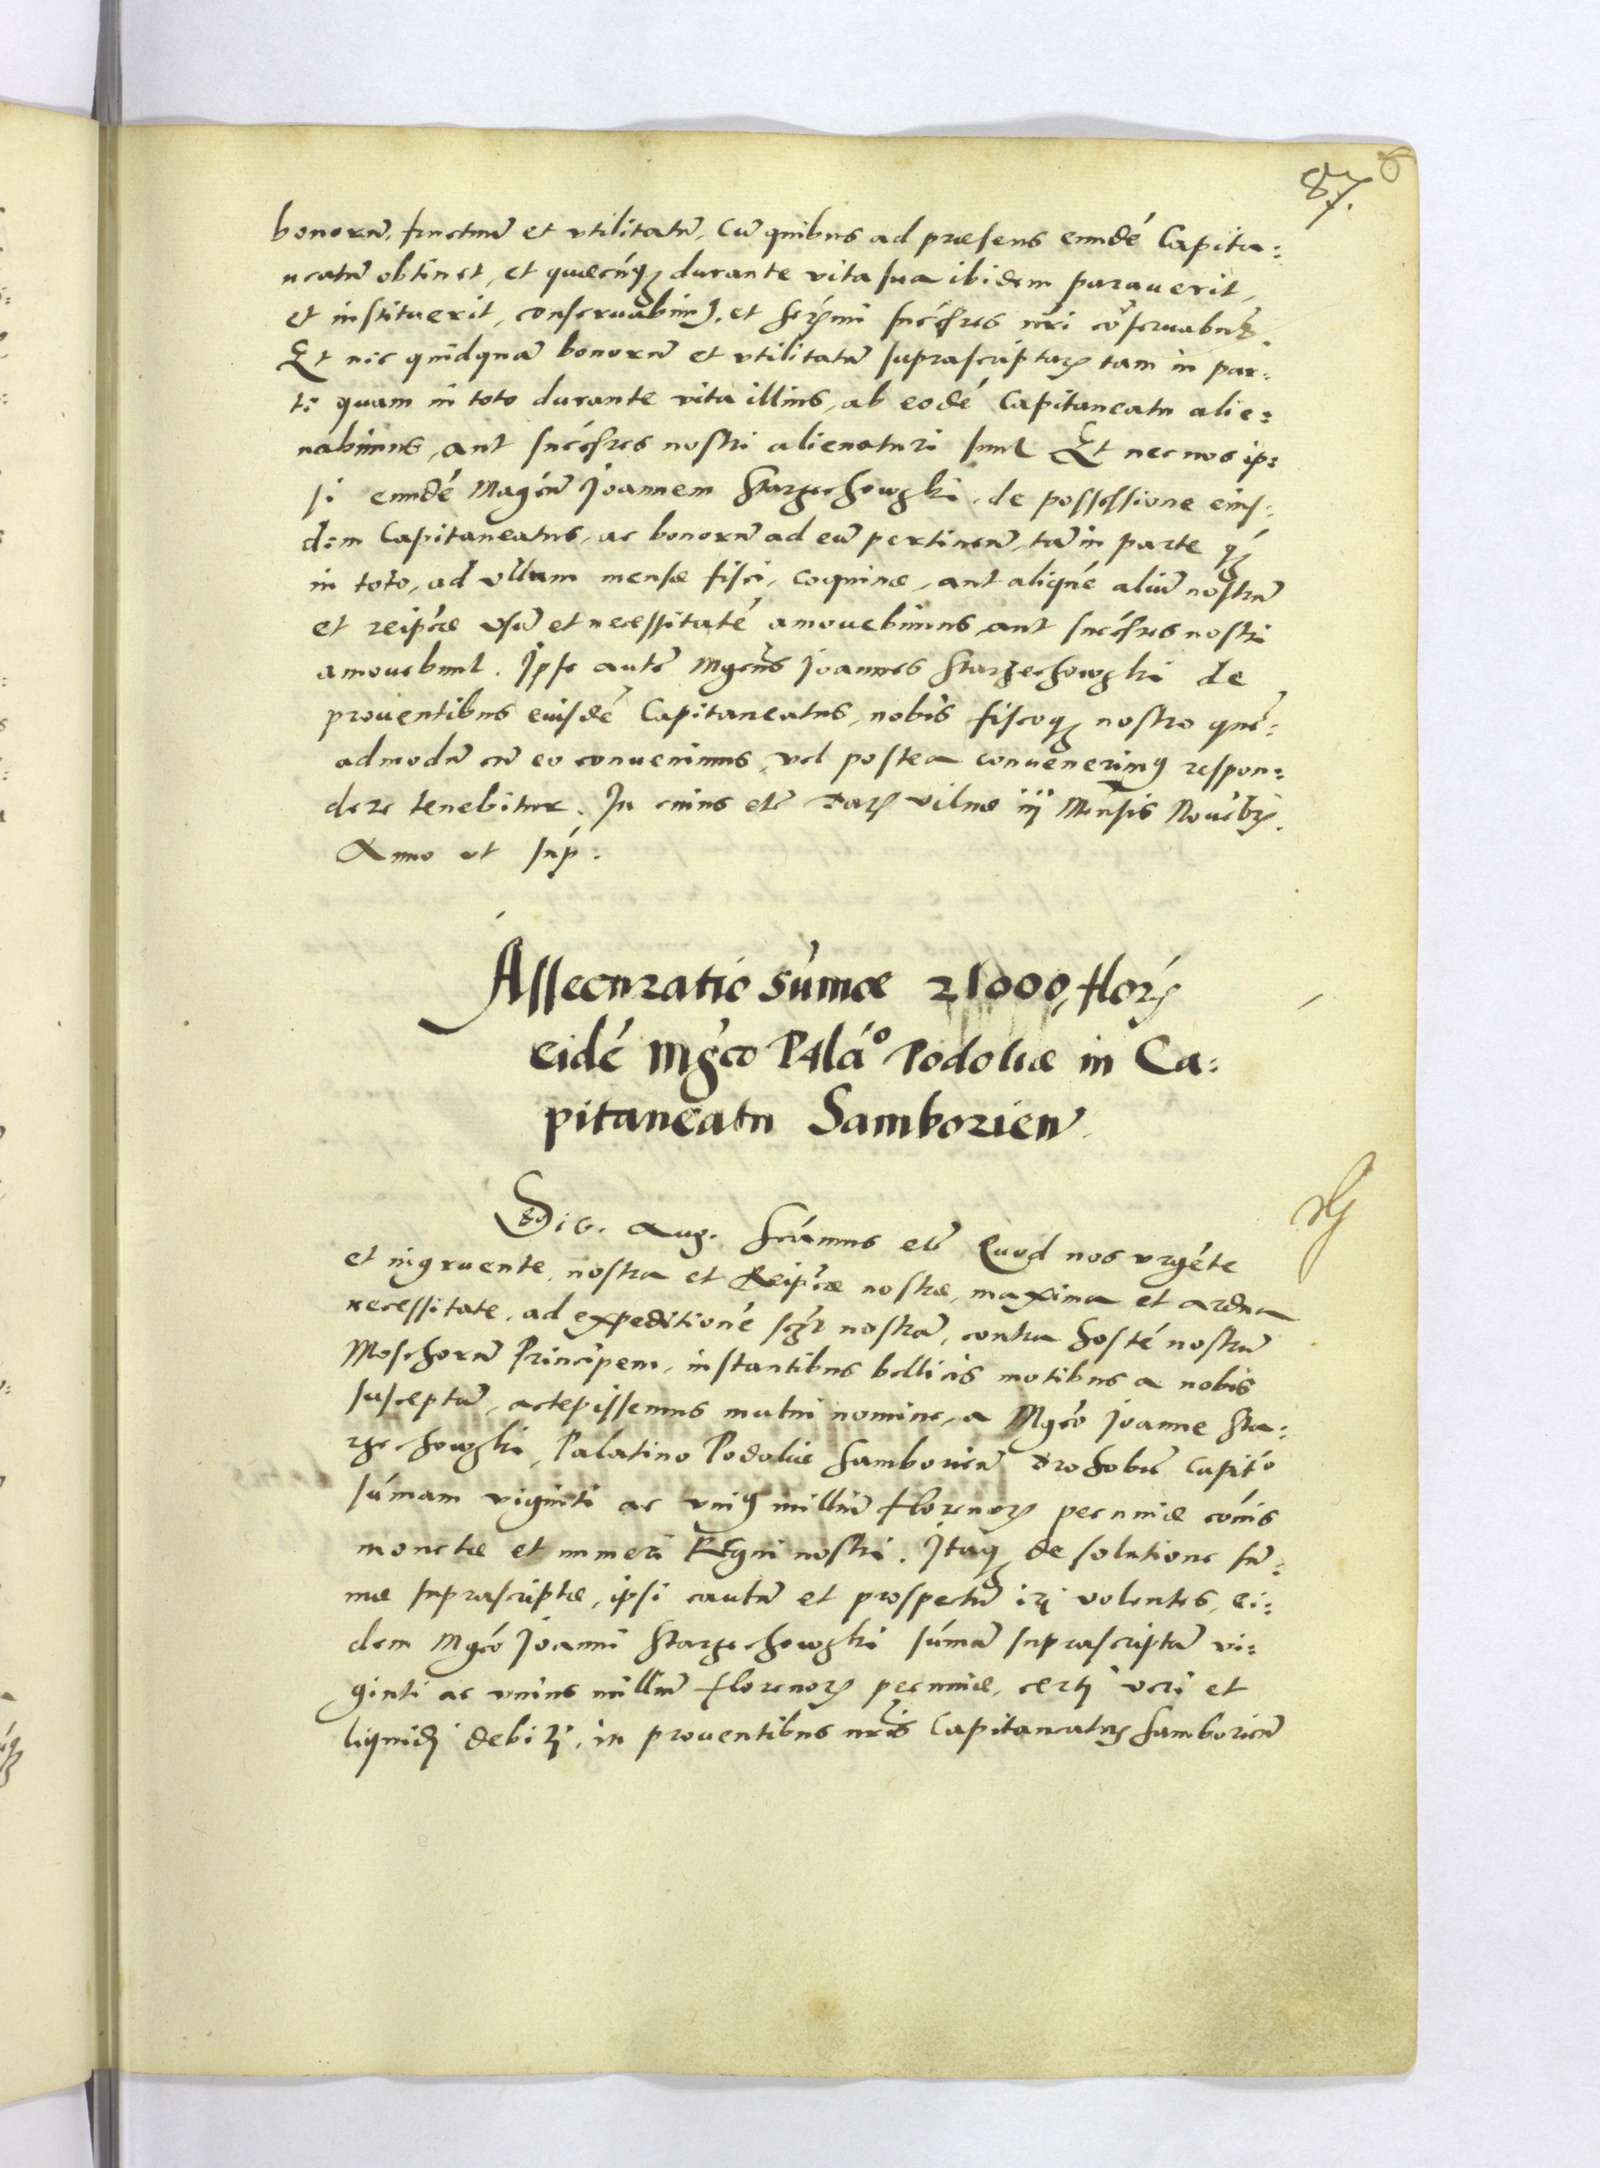 87.
6
bonorũ, fructuũ et vtilitatũ, Cũ quibus ad præsens eundẽ Capita:
neatũ obtinet, et quæcũq3 durante vita sua ibidem parauerit,
et instituerit, conseruabimus, et sermi succẽsres nr̃i cõseruabũt.
Et nec quidquã bonorũ et vtilitatũ suprascriptarꝫ tam in par:
te quam in toto durante vita illius, ab eodẽ Capitaneatu alie:
nabimus, aut succẽsres nostri alienaturi sunt Et nec nos ip:
si eundẽ Magcũ Joannem Starzechowski, de possessione eius:
dem Capitaneatus, ac bonorũ ad eũ pertineñ, tã in parte q̃3
in toto, ad vllum mensæ fisci, coquinæ, aut aliquẽ aliũ nostrũ
et reipcæ vsũ et necessitatẽ amouebimus, aut succẽsres nostri
amouebunt. Ipse autẽ Mgcus Joannes Starzechowski de
prouentibus eiusdẽ Capitaneatus, nobis fiscoq3 nostro quẽ:
admodũ cũ eo conuenimus, vel postea conuenerimus respon:
dere tenebitur. In cuius etc̃ Datꝫ Vilnæ iij Mensis Nouẽbrꝫ.
Anno ut sup.
Assecuratio sũmæ 21000, florꝫ
eidẽ Mgco Palãº Podoliæ in Ca:
pitaneatu Samborieñ
Sig. Aug. scimus etc̃ Quod nos vrgẽte
et ingruente, nostra et Reipcæ nostræ, maxima et ardua
necessitate, ad expeditionẽ nostrã, contra hostẽ nostrũ
Moschorũ Principem, instantibus bellicis motibus a nobis
susceptã, accepissemus mutui nomine, a Mgco Joanne Sta:
rzechowski, Palatino Podoliæ Samborieñ Drohobiẽ Capitº
sũmam viginti ac vnius milliũ florenorꝫ pecuniæ cõis
monetæ et numeri Regni nostri. Itaq3 de solutione sũ:
mæ suprascriptæ, ipsi cautũ et prospectũ iri volentes, ei:
dem Mgco Joanni Starzechowski sũmã suprascriptã vi:
ginti ac vnius milliũ florenorꝫ pecuniæ, certi veri et
liquidi debiti, in prouentibus nr̃is Capitaneatus Samborieñ